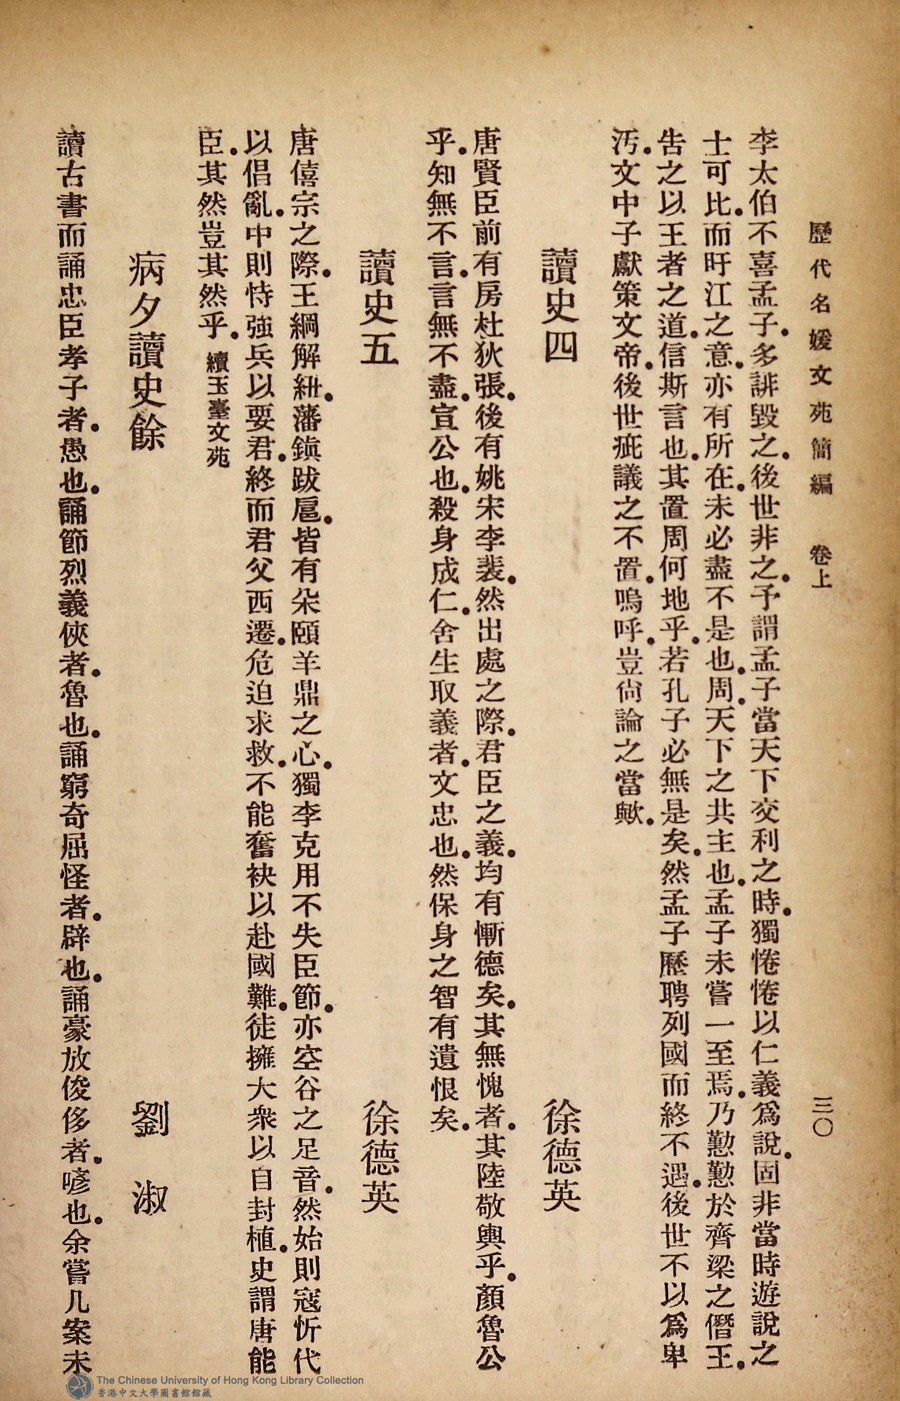 歷代名媛文苑簡編　卷上　三〇
李太伯不喜孟子．多誹毀之．後世非之．予謂孟子當天下交利之時．獨惓惓以仁義爲說．固非當時遊說之
士可比．而旴江之意．亦有所在．未必盡不是也．周天下之共主也．孟子未嘗一至焉．乃懃懃於齊梁之僭王．
告之以王者之道．信斯言也．其置周何地乎．若孔子必無是矣．然孟子歷聘列國而終不遇．後世不以爲卑
汚．文中子獻策文帝．後世疵議之不置．嗚呼．豈尙論之當歟．
讀史四　徐德英
唐賢臣前有房杜狄張．後有姚宋李裴．然出處之際．君臣之義．均有慚德矣．其無愧者．其陸敬輿乎．顏魯公
乎．知無不言．言無不盡．宣公也．殺身成仁．舍生取義者．文忠也．然保身之智有遺恨矣．
讀史五　徐德英
唐僖宗之際．王綱解紐．藩鎭跋扈．皆有朵頤羊鼎之心．獨李克用不失臣節．亦空谷之足音．然始則寇忻代
以倡亂．中則恃強兵以要君．終而君父西遷．危迫求救．不能奮袂以赴國難．徒擁大衆以自封植．史謂唐能
臣．其然豈其然乎．續玉臺文苑
病夕讀史餘　劉淑
讀古書而誦忠臣孝子者．愚也．誦節烈義俠者．魯也．誦窮奇屈怪者．辟也．誦豪放俊侈者．喭也．余嘗几案未
The Chinese University of Hong Kong Library Collection
香港中文大學圖書館館藏